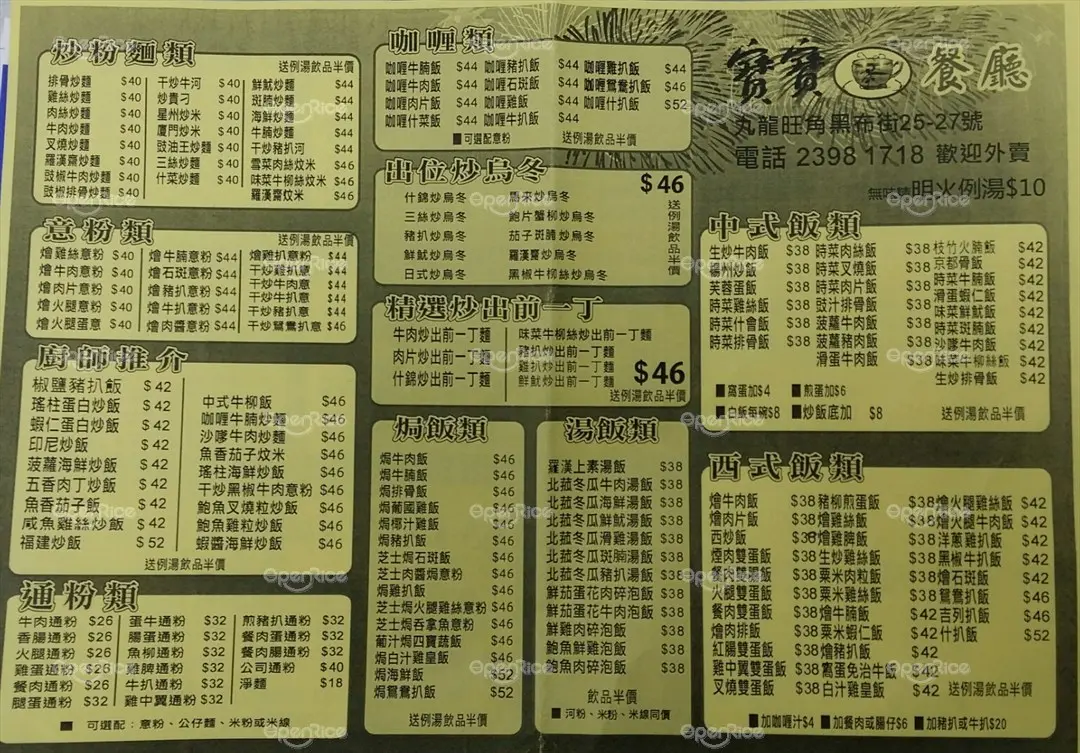 寶寶餐廳
九龍旺角黑布街25-27號
電話 2398 1718 歡迎外賣
明火例湯$10
炒粉麵類
送例湯飲品半價
排骨炒麵 $40
雞絲炒麵 $40
肉絲炒麵 $40
牛肉炒麵 $40
叉燒炒麵 $40
羅漢齋炒麵 $40
豉椒牛肉炒麵 $40
豉椒排骨炒麵 $40
干炒牛河 $40
炒貴刁 $40
星州炒米 $40
廈門炒米 $40
豉油王炒麵 $40
三絲炒麵 $40
什菜炒麵 $40
鮮魷炒麵 $44
斑腩炒麵 $44
海鮮炒麵 $44
牛腩炒麵 $44
干炒豬扒河 $44
雪菜肉絲炆米 $46
味菜牛柳絲炆米 $46
羅漢齋炆米 $46
意粉類
送例湯飲品半價
燴雞絲意粉 $40
燴牛肉意粉 $40
燴肉片意粉 $40
燴火腿意粉 $40
燴火腿蛋意 $40
燴牛腩意粉 $44
燴石斑意粉 $44
燴豬扒意粉 $44
燴牛扒意粉 $44
燴肉醬意粉 $44
燴雞扒意粉 $44
干炒雞扒意 $44
干炒牛肉意 $44
干炒牛扒意 $44
干炒豬扒意 $44
干炒鴛鴦扒意 $46
廚師推介
椒鹽豬扒飯 $42
瑤柱蛋白炒飯 $42
蝦仁蛋白炒飯 $42
印尼炒飯 $42
菠蘿海鮮炒飯 $42
五香肉丁炒飯 $42
魚香茄子飯 $42
咸魚雞絲炒飯 $42
福建炒飯 $52
中式牛柳飯 $46
咖喱牛腩炒麵 $46
沙嗲牛肉炒麵 $46
魚香茄子炆米 $46
瑤柱海鮮炒飯 $46
干炒黑椒牛肉意粉 $46
鮑魚叉燒粒炒飯 $46
鮑魚雞粒炒飯 $46
蝦醬海鮮炒飯 $46
送例湯飲品半價
通粉類
牛肉通粉 $26
香腸通粉 $26
火腿通粉 $26
雞蛋通粉 $26
餐肉通粉 $26
腿蛋通粉 $32
蛋牛通粉 $32
腸蛋通粉 $32
魚柳通粉 $32
雞脾通粉 $32
牛扒通粉 $32
雞中翼通粉 $32
煎豬扒通粉 $32
餐肉蛋通粉 $32
餐肉腸通粉 $32
公司通粉 $40
淨麵 $18
■ 可選配：意粉、公仔麵、米粉或米線
咖喱類
咖喱牛腩飯 $44
咖喱牛肉飯 $44
咖喱肉片飯 $44
咖喱什菜飯 $44
咖喱豬扒飯 $44
咖喱石斑飯 $44
咖喱雞飯 $44
咖喱牛扒飯 $44
咖喱雞扒飯 $44
咖喱鴛鴦扒飯 $46
咖喱什扒飯 $52
■可選配意粉 送例湯飲品半價
出位炒烏冬
$46
送例湯飲品半價
什錦炒烏冬
三絲炒烏冬
豬扒炒烏冬
鮮魷炒烏冬
日式炒烏冬
馬來炒烏冬
鮑片蟹柳炒烏冬
茄子斑腩炒烏冬
羅漢齋炒烏冬
黑椒牛柳絲炒烏冬
精選炒出前一丁
牛肉炒出前一丁麵
肉片炒出前一丁麵
什錦炒出前一丁麵
味菜牛柳絲炒出前一丁麵
豬扒炒出前一丁麵
雞扒炒出前一丁麵
鮮魷炒出前一丁麵
$46
送例湯飲品半價
焗飯類
焗牛肉飯 $46
焗牛腩飯 $46
焗排骨飯 $46
焗葡國雞飯 $46
焗椰汁雞飯 $46
焗豬扒飯 $46
芝士焗石斑飯 $46
芝士肉醬焗意粉 $46
焗雞扒飯 $46
芝士焗火腿雞絲意粉 $46
芝士焗吞拿魚意粉 $46
葡汁焗四寶蔬飯 $46
焗白汁雞皇飯 $46
焗海鮮飯 $52
焗鴛鴦扒飯 $52
送例湯飲品半價
湯飯類
羅漢上素湯飯 $38
北菇冬瓜牛肉湯飯 $38
北菇冬瓜海鮮湯飯 $38
北菇冬瓜鮮魷湯飯 $38
北菇冬瓜滑雞湯飯 $38
北菇冬瓜斑腩湯飯 $38
北菇冬瓜豬扒湯飯 $38
鮮茄蛋花肉碎泡飯 $38
鮮茄蛋花牛肉泡飯 $38
鮮雞肉碎泡飯 $38
鮑魚鮮雞泡飯 $38
鮑魚肉碎泡飯 $38
飲品半價
■ 河粉、米粉、米線同價
中式飯類
生炒牛肉飯 $38
揚州炒飯 $38
芙蓉蛋飯 $38
時菜雞絲飯 $38
時菜什會飯 $38
時菜排骨飯 $38
時菜肉絲飯 $38
時菜叉燒飯 $38
時菜肉片飯 $38
豉汁排骨飯 $38
菠蘿牛肉飯 $38
菠蘿豬肉飯 $38
滑蛋牛肉飯 $38
枝竹火腩飯 $42
京都骨飯 $42
時菜牛腩飯 $42
滑蛋蝦仁飯 $42
味菜鮮魷飯 $42
時菜斑腩飯 $42
沙嗲牛肉飯 $42
味菜牛柳絲飯 $42
生炒排骨飯 $42
■窩蛋加$4 ■煎蛋加$6
■白飯每碗$8 ■炒飯底加 $8 送例湯飲品半價
西式飯類
燴牛肉飯 $38
燴肉片飯 $38
西炒飯 $38
煙肉雙蛋飯 $38
餐肉雙腸飯 $38
火腿雙蛋飯 $38
餐肉雙蛋飯 $38
燴肉排飯 $38
紅腸雙蛋飯 $38
雞中翼雙蛋飯 $38
叉燒雙蛋飯 $38
豬柳煎蛋飯 $38
燴雞絲飯 $38
燴雞脾飯 $38
生炒雞絲飯 $38
粟米肉粒飯 $38
粟米雞絲飯 $38
燴牛腩飯 $42
粟米蝦仁飯 $42
燴豬扒飯 $42
窩蛋免治牛飯 $42
白汁雞皇飯 $42
燴火腿雞絲飯 $42
燴火腿牛肉飯 $42
洋蔥雞扒飯 $42
黑椒牛扒飯 $42
燴石斑飯 $42
鴛鴦扒飯 $46
吉列扒飯 $46
什扒飯 $52
送例湯飲品半價
■加咖喱汁$4 ■加餐肉或腸仔$6 ■加豬扒或牛扒$20